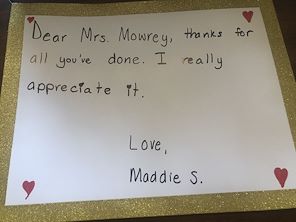 Dear Mrs. Mowrey, thanks for
all you've done. I really
appreciate it.
Love,
Maddie S.